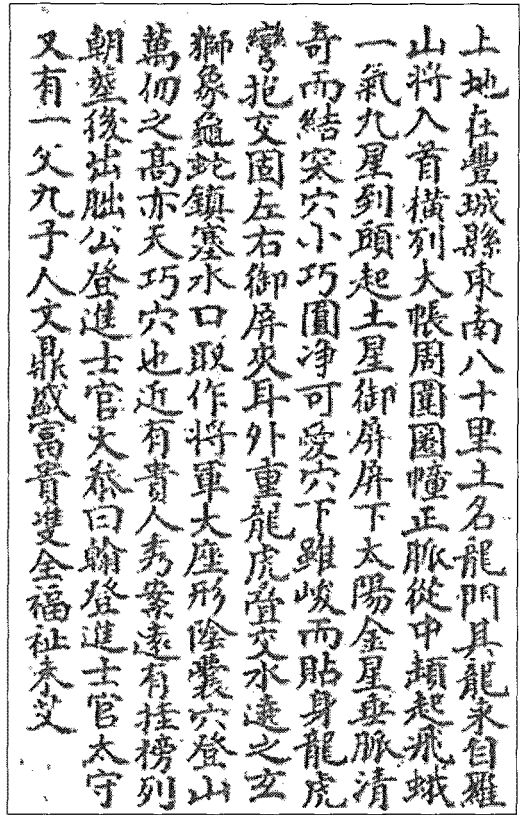 上地在豐城縣東南八十里土名龍門具龍來自羅
山將入首橫列大帳周圍圈幢正脈從中頓起飛蛾
一氣九星到頭起土星御屏屏下太陽金星垂脈清
奇而結突穴小巧圓净可愛穴下雖峻而貼身龍虎
彎抱交固左右御屏夾耳外重龍虎疊交水遶之玄
獅象龜蛇鎮塞水口取作將軍大座形陰囊穴登山
萬仞之高亦天巧穴也近有貴人秀案遠有挂榜列
朝塟後出朏公登進士官大叅曰翰登進士官太守
又有一父九子人文鼎盛富貴雙全福祉未艾